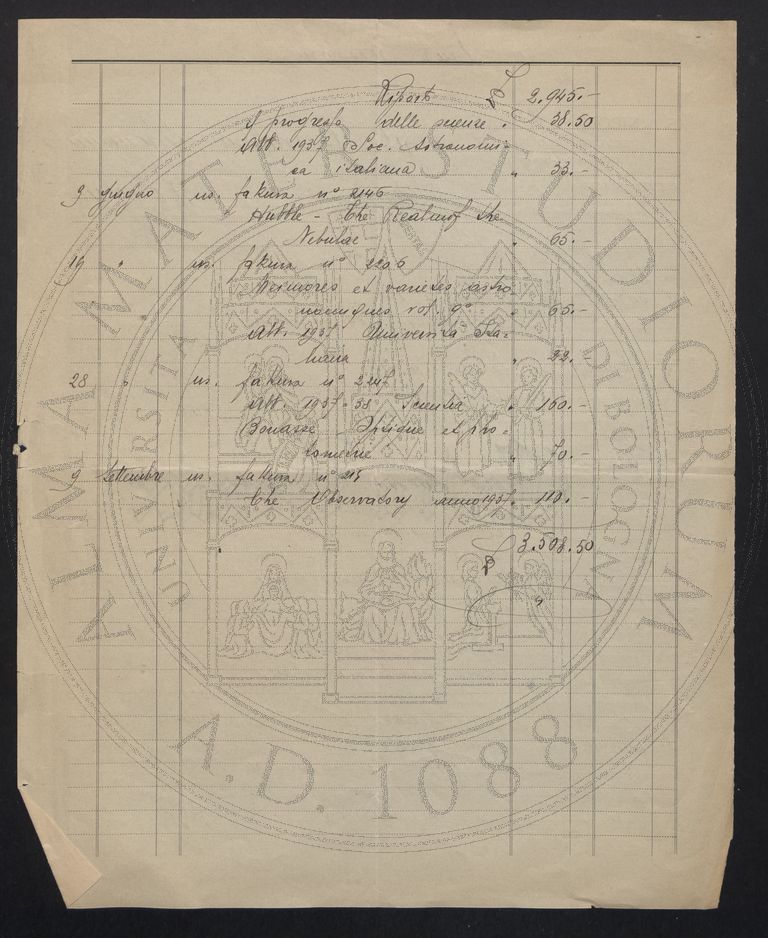 Riporto £ 2.945.-
I progressi delle scienze " 38.50
Abb. 1937 Soc. Astronomi-
ca italiana " 33.-
9 giugno ns. fattura n° 2146
Hubble - The Realm of the
Nebulae " 65.-
19 " ns. fattura n° 2206
Mémoires et variétés astro-
nomiques vol. 9° " 65.-
Abb. 1937 Università Ita-
liana " 22.-
28 " ns. fattura n° 2247
Abb. 1937-38 Scientia " 160.-
Bouasse Optique et pho-
tometrie " 70.-
9 Settembre ns. fattura n° 215
The Observatory anno 1937 " 110.-
£ 3.508.50
ALMA MATER STUDIORUM
UNIVERSITÀ DI BOLOGNA
A.D. 1088